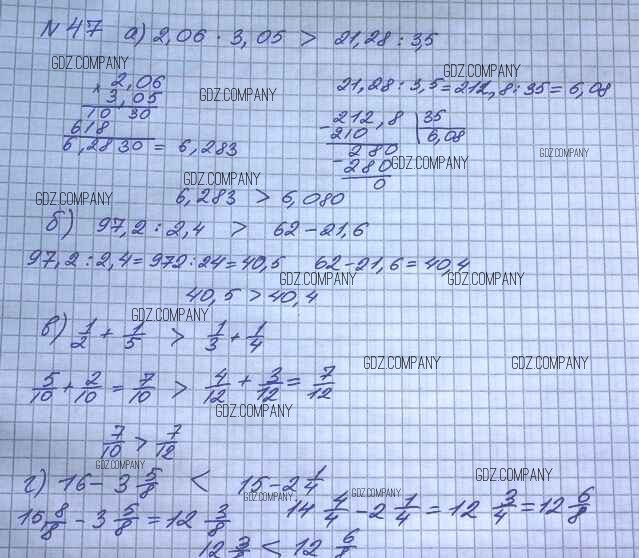 N 47 а) 2,06 · 3,05 > 21,28 : 3,5
GDZ.COMPANY
GDZ.COMPANY
× 2,06
3,05
10 30
618
6,2830 = 6,283
GDZ.COMPANY
21,28 : 3,5 = 212,8 : 35 = 6,08
- 212,8 | 35
210 | 6,08
- 280
280
0
GDZ.COMPANY
GDZ.COMPANY
GDZ.COMPANY
6,283 > 6,080
GDZ.COMPANY
б) 97,2 : 2,4 > 62 - 21,6
97,2 : 2,4 = 972 : 24 = 40,5 62 - 21,6 = 40,4
GDZ.COMPANY GDZ.COMPANY
40,5 > 40,4
GDZ.COMPANY
в) 1/2 + 1/5 > 1/3 + 1/4
GDZ.COMPANY GDZ.COMPANY
5/10 + 2/10 = 7/10 > 4/12 + 3/12 = 7/12
GDZ.COMPANY
7/10 > 7/12
GDZ.COMPANY
г) 16 - 3 5/8 < 15 - 2 1/4
GDZ.COMPANY
GDZ.COMPANY GDZ.COMPANY
15 8/8 - 3 5/8 = 12 3/8 14 4/4 - 2 1/4 = 12 3/4 = 12 6/8
12 3/8 < 12 6/8